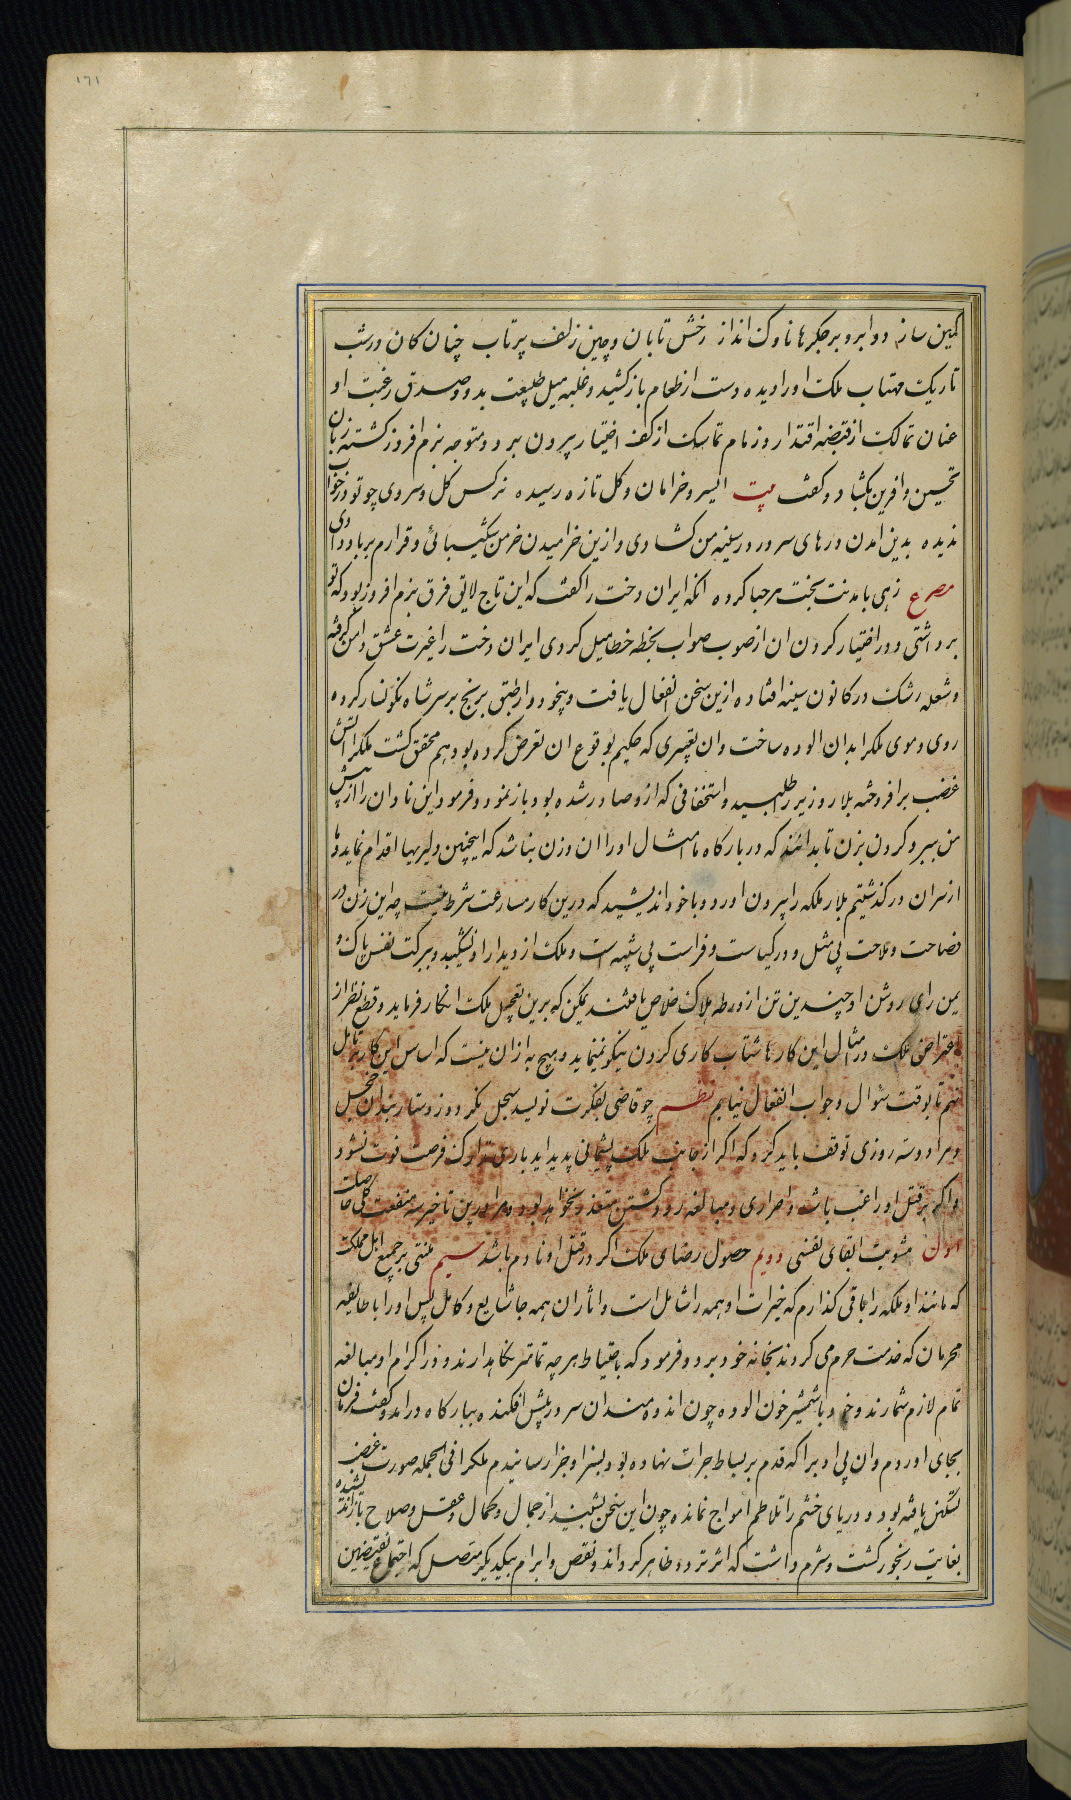 ١٦١
کمین ساز، دو ابرو بر جکرها ناوک انداز رخش تابان و چین زلف پرتاب چنان کان در شب
تاریک مهتاب ملک اورا دیده دست از طعام باز کشید و غلبه میل طبیعت بدو و صدق رغبت او
عنان تمالک از قبضه اقتدار و زمام تماسک از کف اختیار بیرون برد و متوجه بزم افروز کشته زبان
تحسین و افرین بکشاد و کفت بیت ای سرو خرامان و کل تازه رسیده نرکس کل و سروی چو تو در خواب
ندیده بدین امدن درهای سرور در سینه من کشادی و ازین خرامیدن خرمن شکیبائی و قرارم بر باد دادی
مصرع زهی بامدنت بخت مرحبا کرده انکه ایران دخت را کفت که این تاج لایق فرق بزم افروز بود که تو
برداشتی و در اختیار کردن ان از صوب صواب بخطه خطا میل کردی ایران دخت را غیرت عشق دامن کرفته
و شعله رشک در کانون سینه افتاده ازین سخن انفعال یافت و بیخود وار طبق برنج بر سر شاه نکونسار کرده
روی و موی ملک را بدان الوده ساخت و ان تعبیری که حکیم بوقوع ان تعرض کرده بود هم محقق کشت ملک را اتش
غضب برافروخته بلار وزیر را طلبید و استخفافی که ازو صادر شده بود باز نمود و فرمود این نادان را از پیش
من ببر و کردن بزن تا بداند که در بارکاه ما امثال اورا ان وزن نباشد که اینچنین دلیریها اقدام نماید و ما
از سر ان در کذشتیم بلار ملکه را بیرون اورد و با خود اندیشید که درین کار مسارعت شرط نیست چه این زن در
فصاحت و ملاحت بی مثل و در کیاست و فراست بی شبیه است و ملک از دیدار او نشکیبد و ببرکت نفس پاک و
یمن رای روشن او چندین تن از ورطه هلاک خلاص یافتند یمکن که برین تعجیل ملک انکار فرماید و قطع نظر از
اعتراض ملک در امثال این کارها شتاب کاری کردن نیکو نمینماید و هیچ به ازان نیست که اساس این کار بر تامل
نهم تا بوقت سوال و جواب انفعال نیابم نظم چو قاضی بفکرت نویسد سجل نکردد ز دستاربندان خجل
و مرا دو سه روزی توقف باید کرد که اکر از جانب ملک پشیمانی پدید اید باری تدارک فرصت فوت نشود
و اکر بر قتل او راغب باشد و اصراری و مبالغه رود کشتن متعذر نخواهد بود و مرا درین تاخیر سه منفعت کلی حاصلست
اول مثوبت ابقای نفسی دویم حصول رضای ملک اکر در قتل او نادم باشد سیم منتی بر جمیع اهل مملکت
که مانند او ملکه را باقی کذارم که خیرات او همه را شامل است و اثار ان همه جا شایع و کامل پس اورا با طایفه
محرمان که خدمت حرم می کردند بخانه خود برد و فرمود که باحتیاط هر چه تمامتر نکاهدارند و در اکرام او مبالغه
تمام لازم شمارند و خود با شمشیر خون الوده چون اندوهمندان سر در پیش افکنده ببارکاه درامد و کفت فرمان
بجای اوردم و ان بی ادب را که قدم بر بساط جرات نهاده بود بسزا و جزا رسانیدم ملک را فی الجمله صورت غضب
تسکین یافته بود و دریای خشم را تلاطم امواج نمانده چون این سخن بشنید از جمال و کمال و عقل و صلاح باز اندیشیده
بغایت رنجور کشت و شرم داشت که اثر تردد ظاهر کرداند و نقض و ابرام بیکدیکر متصل که اجتماع نقیضین